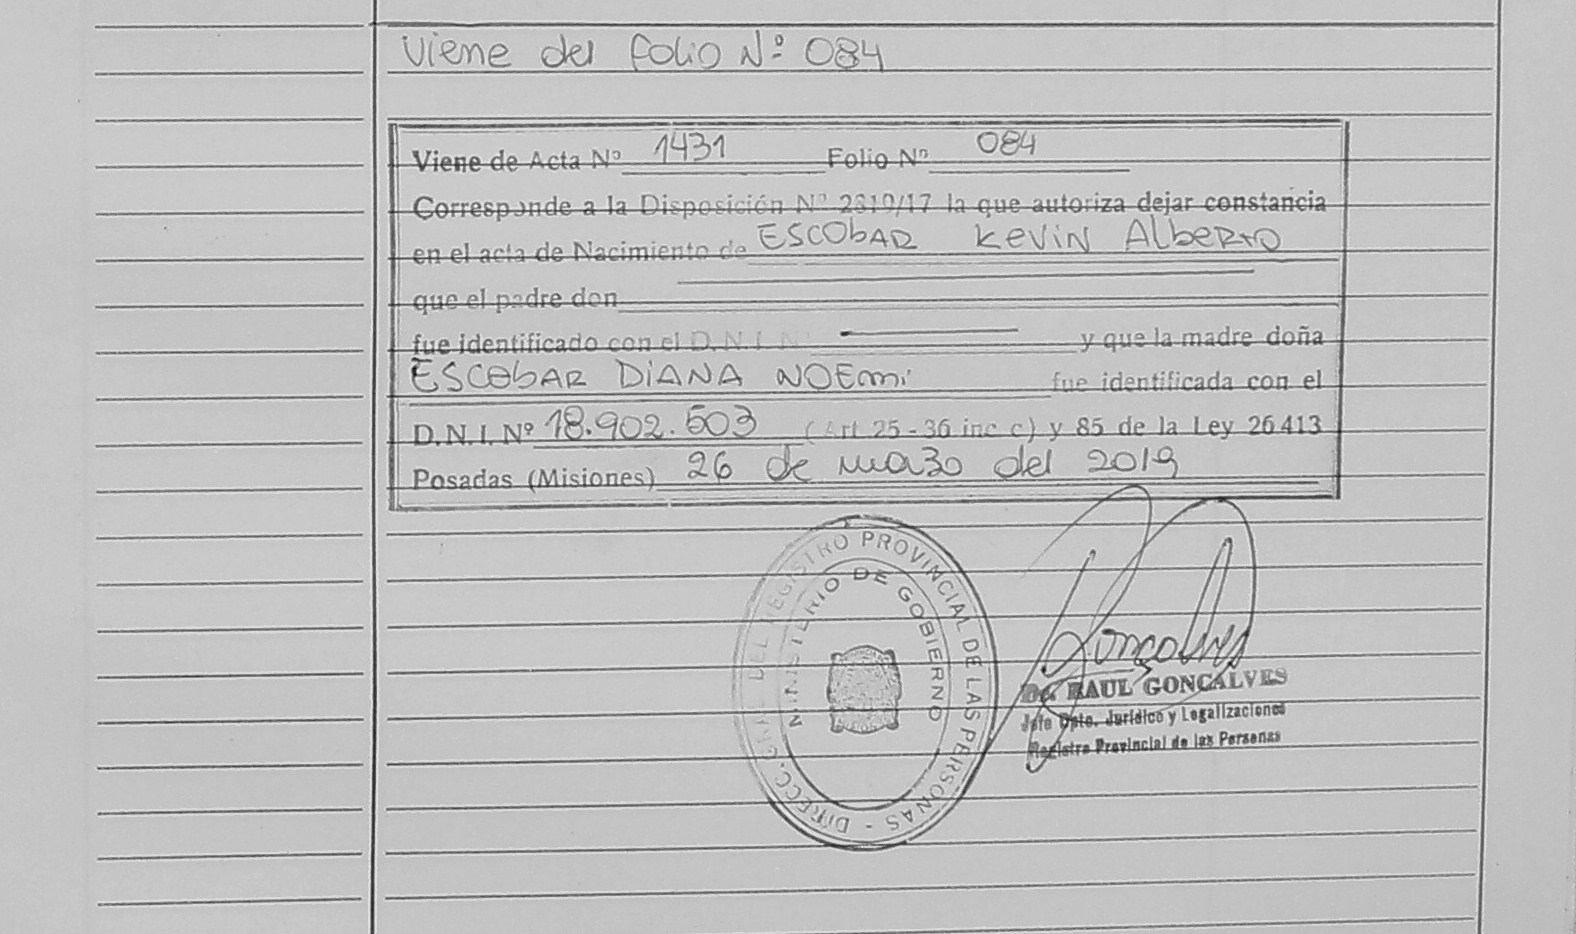 Viene del folio Nº 084
Viene de Acta Nº 1431 Folio Nº 084
Corresponde a la Disposición Nº 2319/17 la que autoriza dejar constancia
en el acta de Nacimiento de ESCObAR KeViN AlbeRto
que el padre don
fue identificado con el D.N.I. Nº y que la madre doña
ESCObAR DiANA NOEmi fue identificada con el
D.N.I. Nº 18.902.503 (Art 25 - 36 inc c) y 85 de la Ley 26413
Posadas (Misiones) 26 de marzo del 2019
DIRECC. GRAL DEL REGISTRO PROVINCIAL DE LAS PERSONAS -
MINISTERIO DE GOBIERNO
Gonçalves
Dr. RAUL GONCALVES
Jefe Dpto. Jurídico y Legalizaciones
Registro Provincial de las Personas